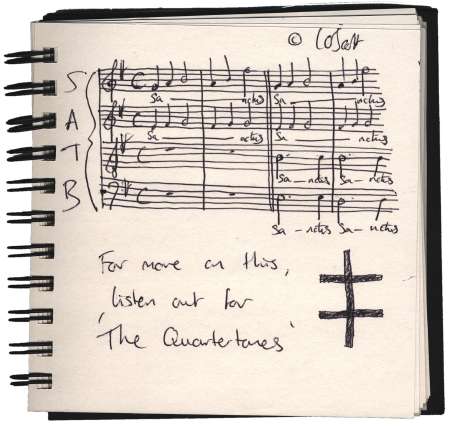 ©
S
Sa nctus Sa nctus
A
Sa nctus Sa nctus
T
Sa - nctus Sa - nctus
B
Sa - nctus Sa - nctus
For more on this,
listen out for
'The Quartertones'